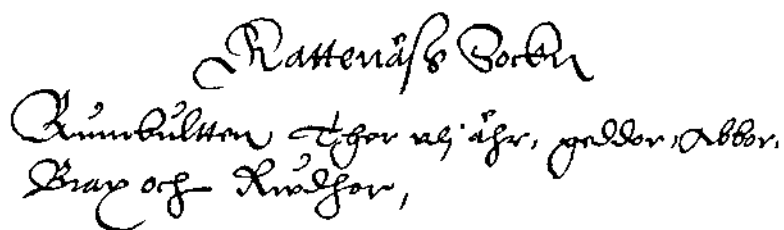 Rattenäss Sockn
Rumbultten Ther vtj ähr, geddor, Abbor,
Brax och Rwdhor,